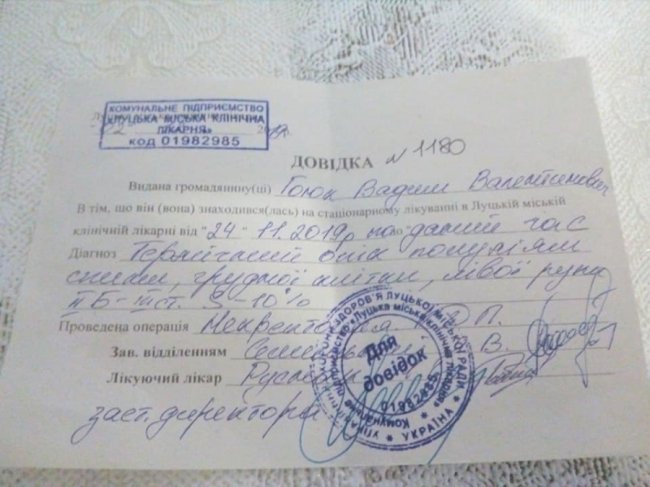 КОМУНАЛЬНЕ ПІДПРИЄМСТВО
«ЛУЦЬКА МІСЬКА КЛІНІЧНА
ЛІКАРНЯ»
КОД 01982985
ДОВІДКА N 1180
Видана громадянину(ці) Гоюк Вадим Валентинович
В тім, що він (вона) знаходився(лась) на стаціонарному лікуванні в Луцькій міській
клінічній лікарні від "24" 11.2019р по даний час
Діагноз Термічний опік полум'ям
спини, грудної клітки, лівої руки
ІІ Б-ІІІ ст. S-10%
Проведена операція
Зав. відділенням
Лікуючий лікар
заст. директора
УПРАВЛІННЯ ОХОРОНИ ЗДОРОВ'Я ЛУЦЬКОЇ МІСЬКОЇ РАДИ
Комунальне підприємство «Луцька міська клінічна лікарня»
Для
довідок
01982985
УКРАЇНА